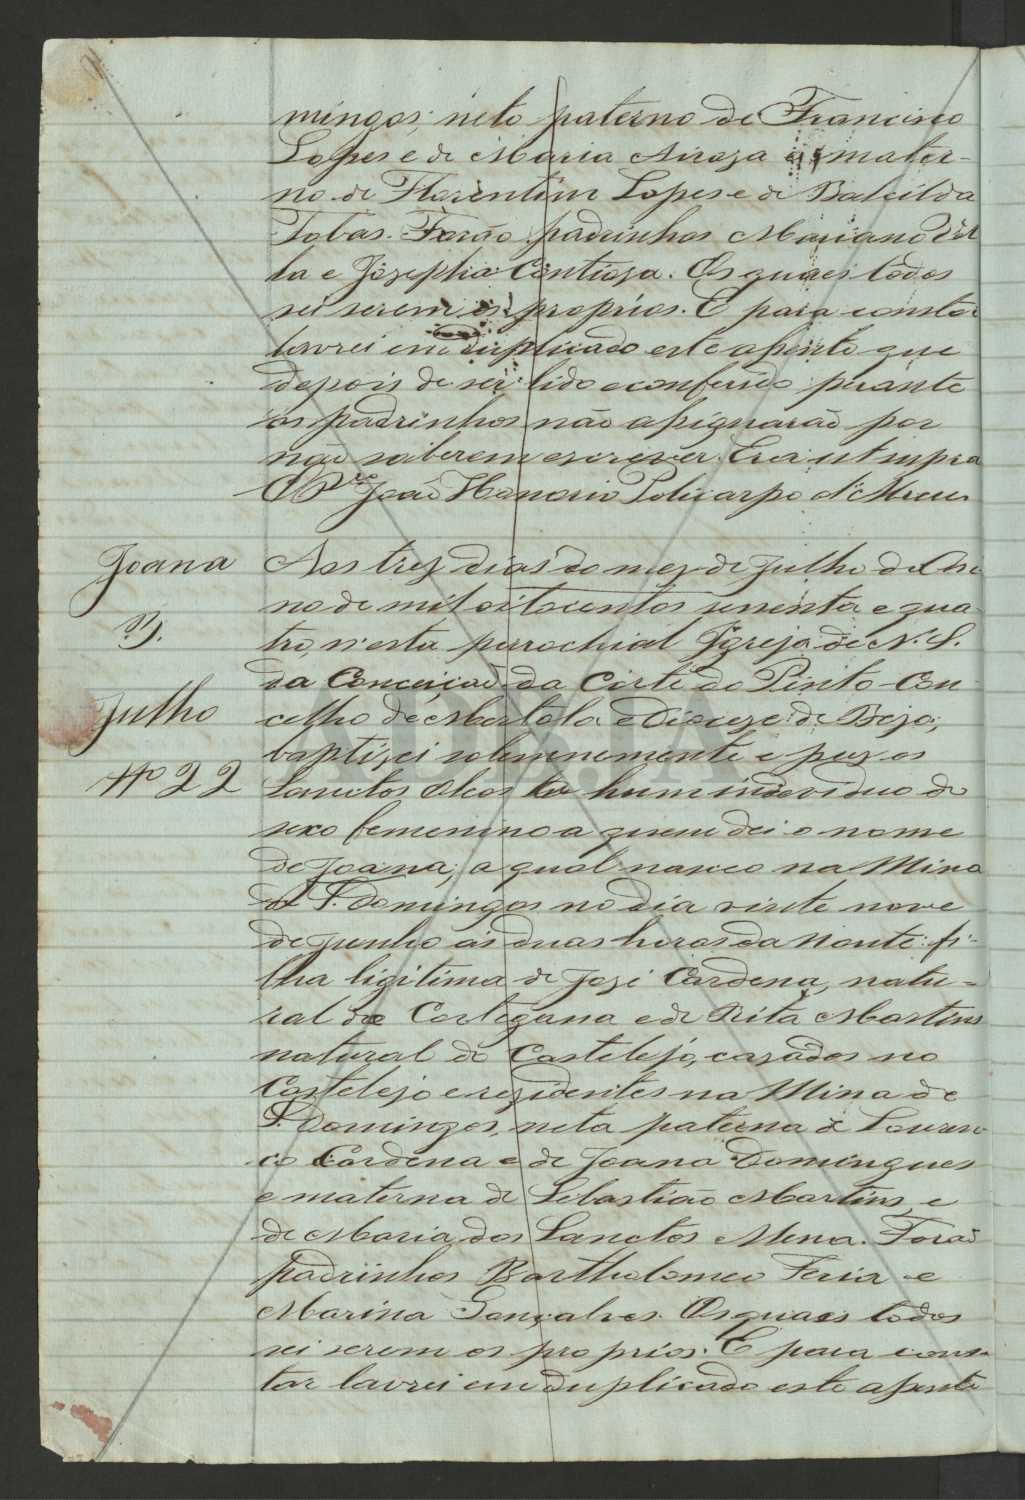 mingos; neto paterno de Francisco
Lopes e de Maria Aroza e mater-
no de Florentim Lopes e de Batilda
Tobas. Forão padrinhos Mariano Vil
la e Josepha Contioza. Os quaes todos
sei serem os proprios. E para constar
lavrei em duplicado este assento que
depois de ser lido e conferido perante
os padrinhos não assignarão por
não saberem escrever. Era ut supra
O Pr.e João Honorio Policarpo d'
Joana
Julho
Nº 22
Aos trez dias do mez de Julho de An
no de mil oitocentos secenta e qua
tro, n'esta parochial Igreja de N. S.
da Conceição da Corte do Pinto Con
celho de Mertola e Dioceze de Beja,
baptizei solemnemente e puz os
Sanctos Oleos a hum individuo do
sexo femenino a quem dei o nome
de Joana; a qual nasceo na Mina
de S. Domingos no dia vinte nove
de Junho ás duas horas da noute: fi-
lha ligitima de José Cardena, natu-
ral de Cortegana e de Rita Martins
natural do Castelejo, cazados no
Castelejo e rezidentes na Mina de
S. Domingos, neta paterna de Louren
ço Cardena e de Joana Domingues
e materna de Sebastião Martins, e
de Maria dos Sanctos Mena. Forão
padrinhos Bartholomeo Feria e
Marina Gonçalves. Os quaes todos
sei serem os proprios. E para cons-
tar lavrei em duplicado este assento
ADBJA